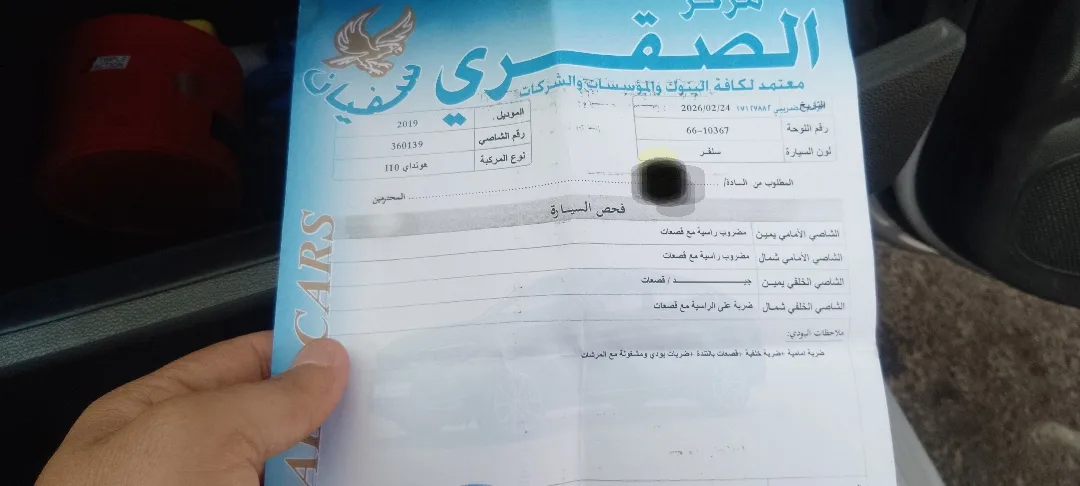 مركز
الصقري
سفيان
معتمد لكافة البنوك والمؤسسات والشركات
التاريخ : 2026/02/24
17127882
رقم اللوحة 66-10367
لون السيارة سلفر
الموديل . 2019
رقم الشاصي 360139
نوع المركبة هونداي I10
المطلوب من السادة/ ........ المحترمين
فحص السيارة
الشاصي الأمامي يمين مضروب راسية مع قصعات
الشاصي الأمامي شمال مضروب راسية مع قصعات
الشاصي الخلفي يمين جيــــــــد / قصعات
الشاصي الخلفي شمال ضربة على الراسية مع قصعات
ملاحظات البودي:
ضربة امامية +ضربة خلفية +قصعات بالتندة +ضربات بودي ومشغولة مع المرشات
CARS